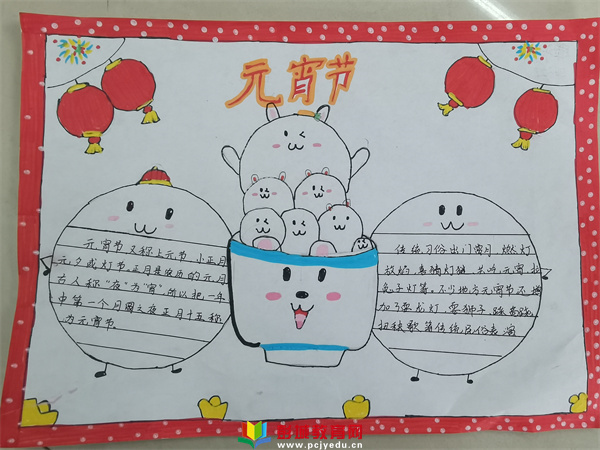 元宵节
元宵节又称上元节 小正月
元夕或灯节,正月是农历的元月
古人称"夜"为"宵"所以把一年
中第一个月圆之夜正月十五称
为元宵节
传统习俗出门赏月、燃灯
放焰、喜猜灯谜、共吃元宵、拉
兔子灯等、不少地方元宵节
加了耍龙灯、耍狮子、踩高跷
扭秧歌等传统民俗表演
彭城教育网
www.pcjyedu.cn